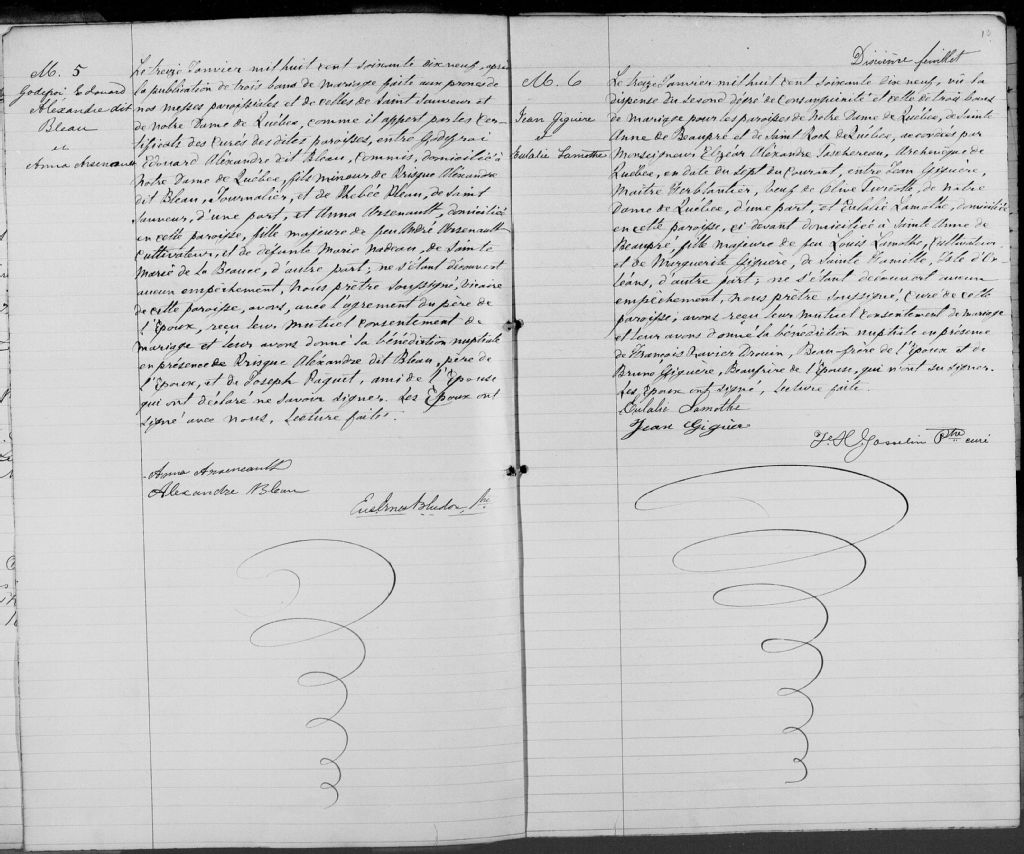 M. 5
Godefroi Edouard
Alexandre dit
Bleau
et
Anna Arsenault
Le treize Janvier mil huit cent soixante dix neuf, après
la publication de trois bans de mariage faite aux prônes de
nos messes paroissiales et de celles de Saint Sauveur et
de Notre Dame de Québec, comme il appert par les Cer-
tificats des Curés des dites paroisses, entre Godefroi
Edouard Alexandre dit Bleau, Commis, domicilié à
Notre Dame de Québec, fils mineur de Prisque Alexandre
dit Bleau, Journalier, et de Phebée Pleau, de Saint
Sauveur, d'une part, et Anna Arsenault, domiciliée
en cette paroisse, fille majeure de feu André Arsenault
cultivateur, et de défunte Marie Nadeau, de Sainte
Marie de la Beauce, d'autre part; ne s'étant découvert
aucun empêchement, Nous prêtre soussigné, vicaire
de cette paroisse, avons, avec l'agrément du père de
l'Epoux, reçu leur mutuel consentement de
mariage et leur avons donné la bénédiction nuptiale
en présence de Prisque Alexandre dit Bleau, père de
l'Epoux, et de Joseph Paquet, ami de l'Epouse
qui ont déclaré ne savoir signer. Les Epoux ont
signé avec nous, Lecture faite.
Anna Arseneault
Alexandre Bleau
Ptre
Dixième feuillet
M. 6
Jean Giguère
et
Eulalie Lamothe
Le treize Janvier mil huit cent soixante dix neuf, vu la
dispense du second dégré de Consanguinité et celle de trois bans
de mariage pour les paroisses de Notre Dame de Québec, de Sainte
Anne de Beaupré et de Saint Roch de Québec, accordées par
Monseigneur Elzéar Alexandre Taschereau, Archevêque de
Québec, en date du sept du Courant, entre Jean Giguère,
Maître Ferblantier, veuf de Olive Turcotte, de Notre
Dame de Québec, d'une part, et Eulalie Lamothe, domiciliée
en cette paroisse, ci devant domiciliée à Sainte Anne de
Beaupré, fille majeure de feu Louis Lamothe, Cultivateur
et de Marguerite Giguère, de Sainte Famille, Isle d'Or-
léans, d'autre part; ne s'étant découvert aucun
empêchement, Nous prêtre soussigné, Curé de cette
paroisse, avons reçu leur mutuel consentement de mariage
et leur avons donné la bénédiction nuptiale en présence
de François Xavier Drouin, Beau-frère de l'Epoux et de
Bruno Giguère, Beaufrère de l'Epouse, qui n'ont su signer.
Les Epoux ont signé, lecture faite.
Eulalie Lamothe
Jean Giguèr
F. H. Gosselin Ptre curé